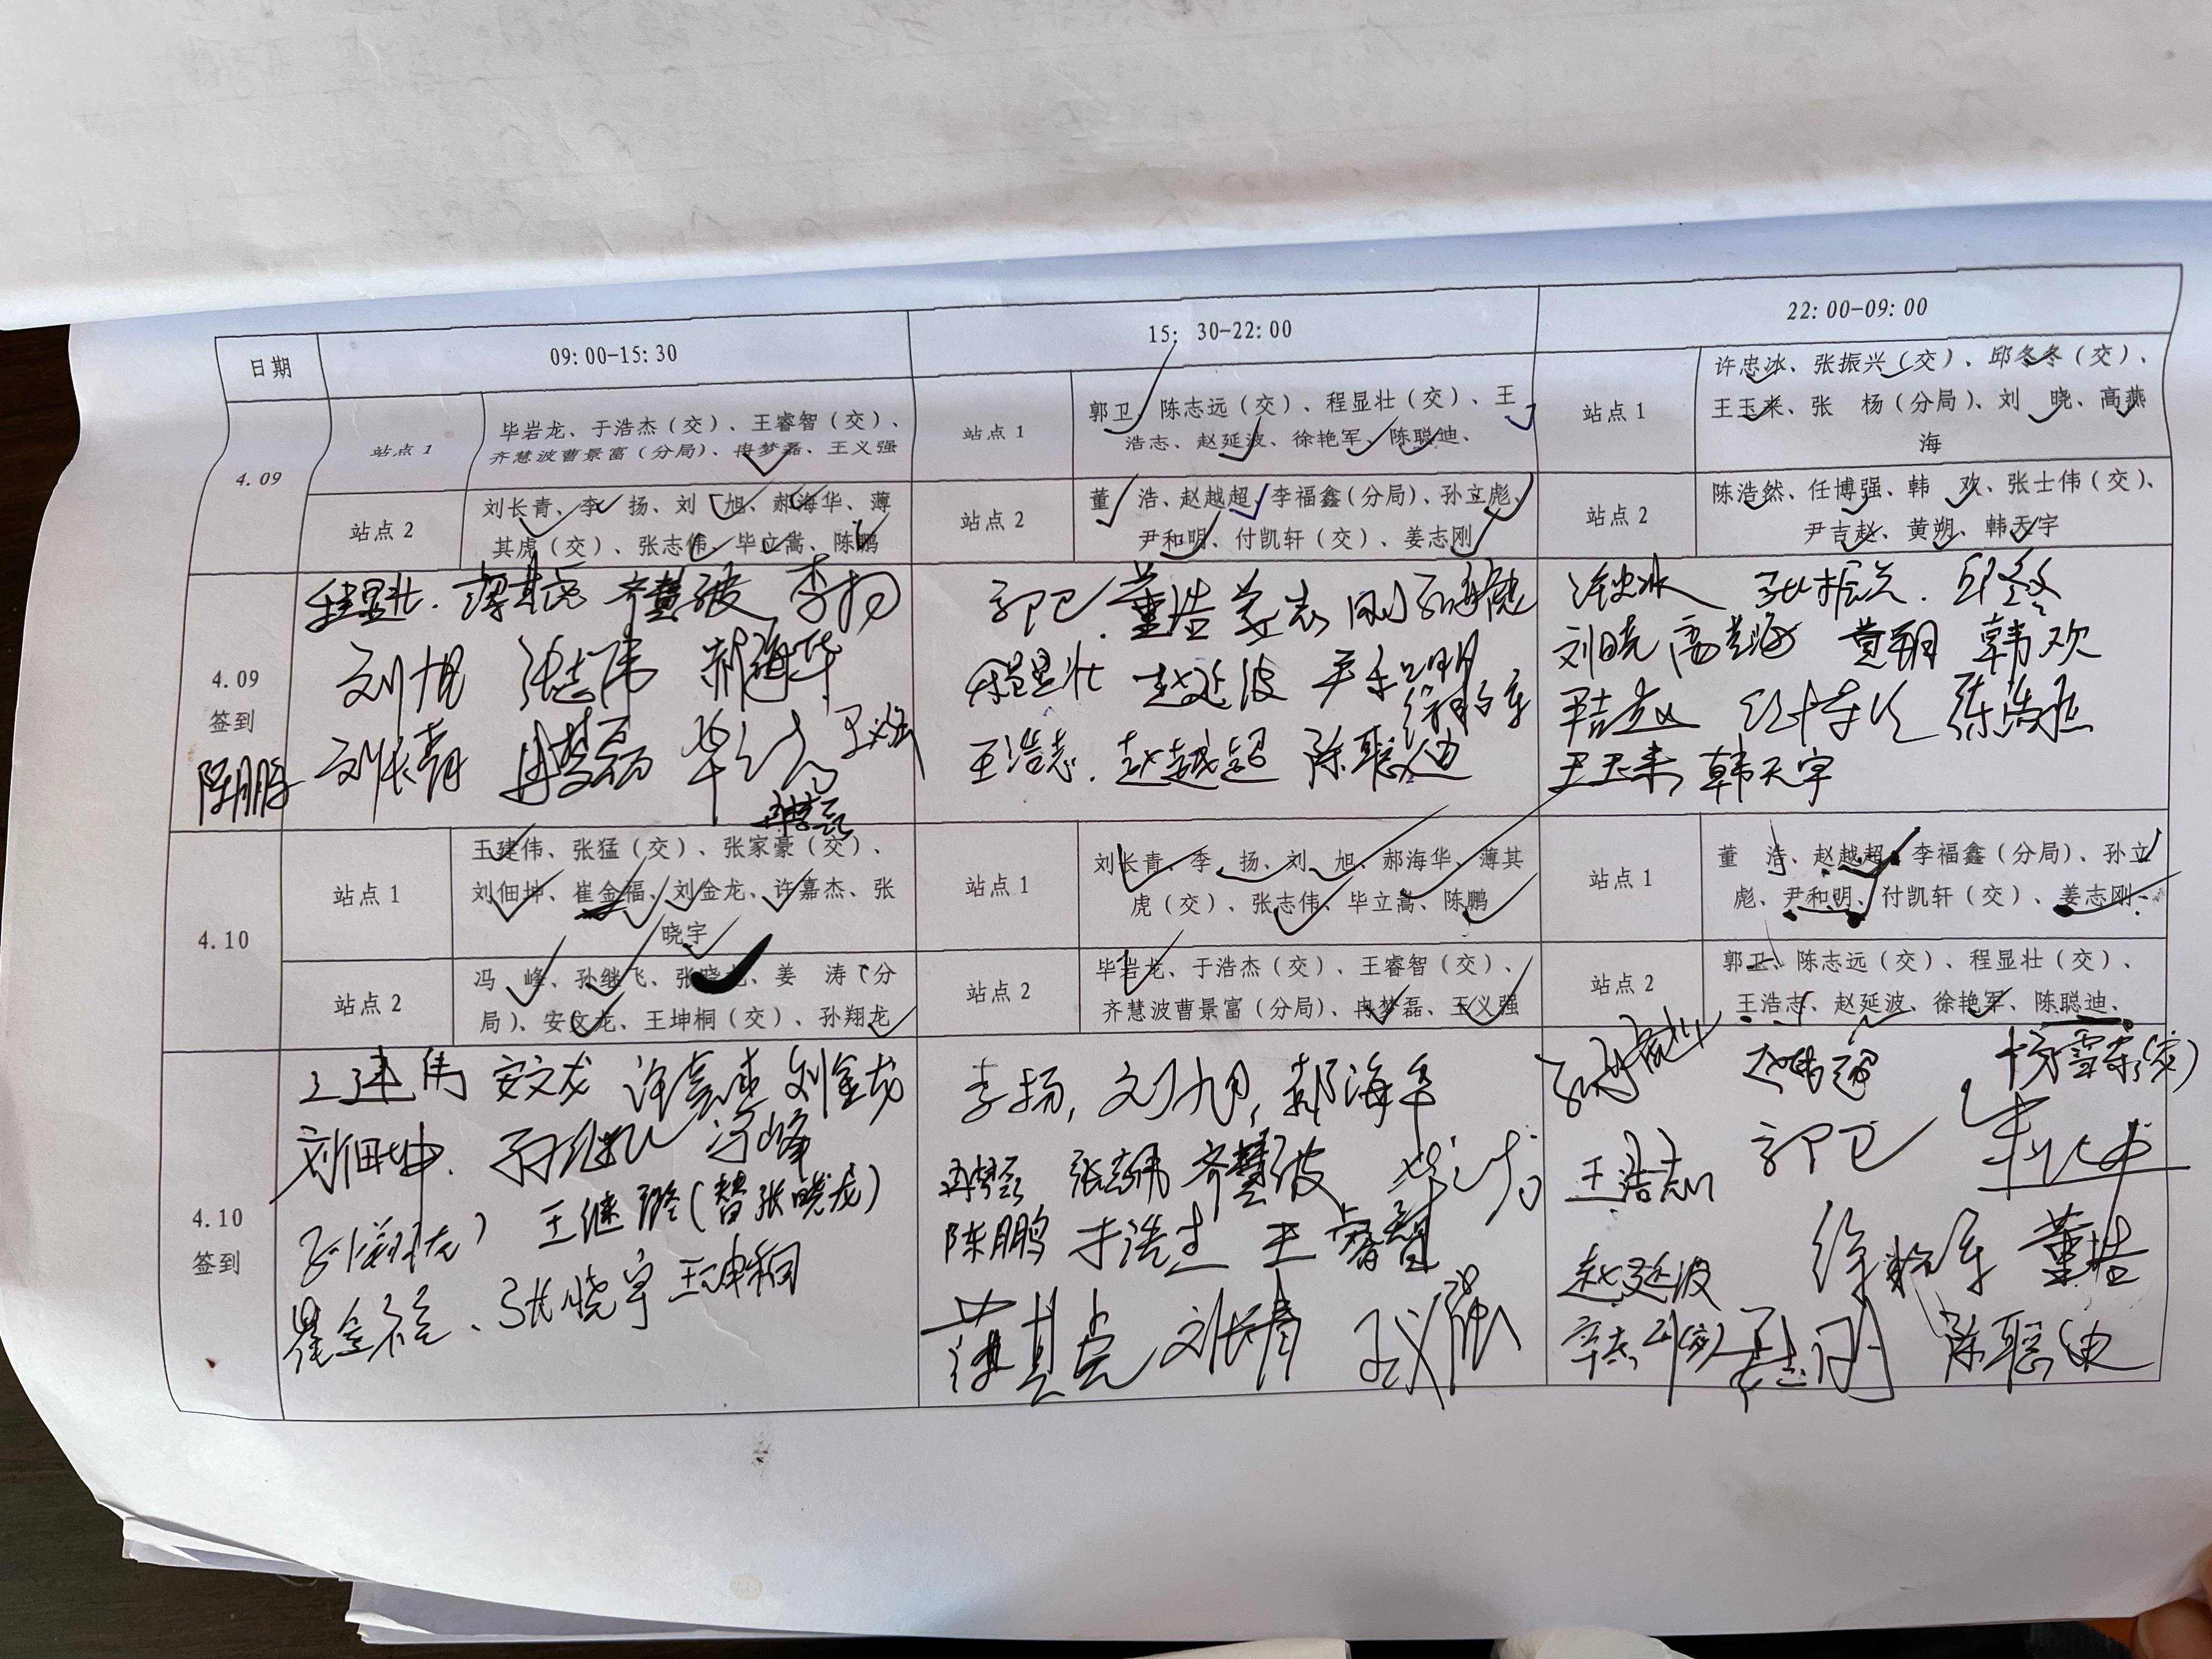 日期
09:00-15:30
15:30-22:00
22:00-09:00
4.09
站点1
毕岩龙、于浩杰（交）、王睿智（交）、
齐慧波曹景富（分局）、冉梦磊、王义强
站点1
郭卫、陈志远（交）、程显壮（交）、王
浩志、赵延波、徐艳军、陈聪迪、
站点1
许忠冰、张振兴（交）、邱冬冬（交）、
王玉来、张 杨(分局)、刘 晓、高燕
海
站点2
刘长青、李 扬、刘 旭、郝海华、薄
其虎（交）、张志伟、毕立嵩、陈鹏
站点2
董 浩、赵越超、李福鑫(分局)、孙立彪、
尹和明、付凯轩（交）、姜志刚
站点2
陈浩然、任博强、韩 欢、张士伟（交）、
尹吉赵、黄朔、韩天宇
4.09
签到
陈鹏
程显壮. 薄其虎 齐慧波 李扬
刘旭 张志伟 郝海华
刘长青 冉梦磊 毕立嵩 王义强
冉梦磊
郭卫. 董浩 姜志刚 孙立彪
程显壮 赵延波 尹和明
徐艳军
王浩志. 赵越超 陈聪迪
许忠冰 张振兴. 邱冬冬
刘晓 高燕海 黄朔 韩欢
尹吉赵 任博强 陈浩然
王玉来 韩天宇
4.10
站点1
王建伟、张猛（交）、张家豪（交）、
刘佃坤、崔金福、刘金龙、许嘉杰、张
晓宇
站点1
刘长青、李 扬、刘 旭、郝海华、薄其
虎（交）、张志伟、毕立嵩、陈鹏
站点1
董 浩、赵越超、李福鑫（分局）、孙立
彪、尹和明、付凯轩（交）、姜志刚
站点2
冯 峰、孙继飞、张晓龙、姜 涛（分
局）、安文龙、王坤桐（交）、孙翔龙
站点2
毕岩龙、于浩杰（交）、王睿智（交）、
齐慧波曹景富（分局）、冉梦磊、王义强
站点2
郭卫、陈志远（交）、程显壮（交）、
王浩志、赵延波、徐艳军、陈聪迪、
4.10
签到
王建伟 安文龙 许嘉杰 刘金龙
刘佃坤. 孙继飞 冯峰
孙翔龙 王继 (替张晓龙)
崔金福、张晓宇 王坤桐
李扬, 刘旭, 郝海华
冉梦磊 张志伟 齐慧波 毕立嵩
陈鹏 于浩杰 王睿智
薄其虎 刘长青 王义强
孙立彪 赵越超
王浩志 郭卫
徐艳军 董浩
赵延波
姜志刚 陈聪迪